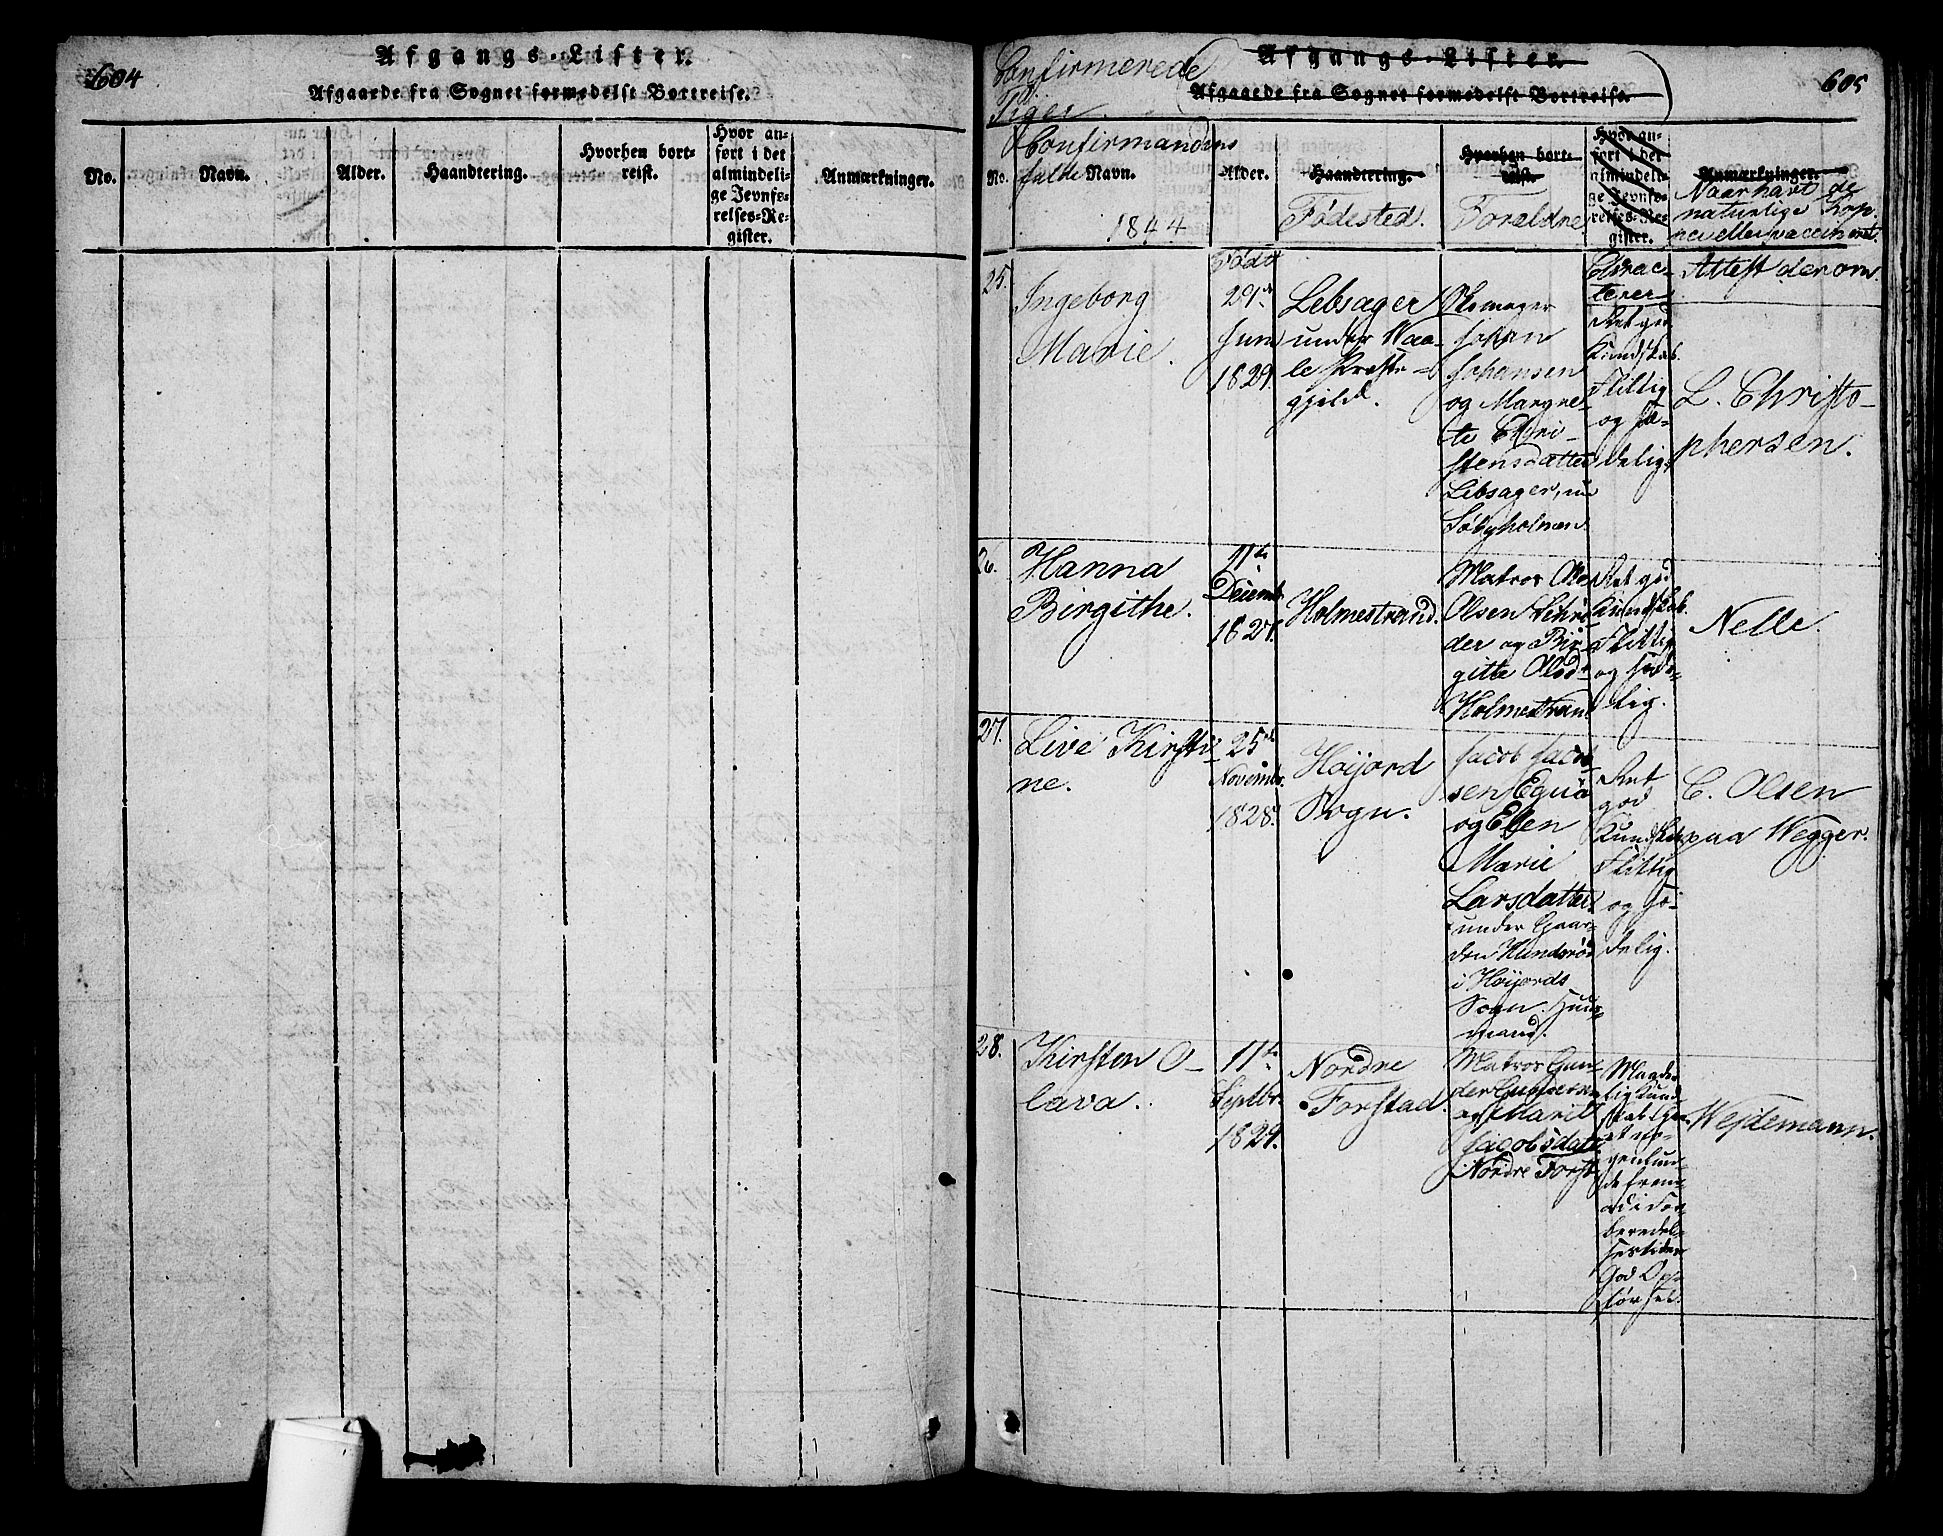 604
Afgangs-Lister.
Afgaaede fra Sognet formedelst Bortreise.
No.
Navn.
Alder.
Haandtering.
Hvorhen bort-
reist.
Hvor an-
ført i det
almindeli-
ge Jevnfø-
relses-Re-
gister.
Anmærkninger.
Confirmerede
Piger.
Afgangs-Lister.
605
Afgaaede fra Sognet formedelst Bortreise.
No.
Confirmandens
fulde Navn.
1844
Alder.
Haandtering.
Fødested.
Hvorhen bort-
reist.
Forældre
Hvor an-
ført i det
almindeli-
ge Jevnfø-
relses-Re-
gister.
Anmærkninger.
Naar havt de
naturlige Kop-
per eller vaccineret.
25.
Ingeborg
Marie.
Født
29de
Juni
1829.
Lebsager
under Waa-
le Præste-
gjeld.
Johan
Johansen
og Margre-
te Chri-
stensdatter
Lebsager, nu
Søbyholmen.
Charac-
terer
Ret god
Kundskab.
Flittig
og Sæ-
delig.
Attest derom
L. Christo-
phersen.
26.
Hanna
Birgithe.
11te
Decemb.
1827.
Holmestrand.
Matros Ole
Olsen Schrø-
der og Bir-
gitte Olsd.
Holmestrand
Ret god
Kundskab.
Flittig
og Sæde-
lig.
Nelle.
27.
Live Kirsti-
ne.
25de
Novemb.
1828.
Høijord
Sogn.
Jacob Jacob-
sen
og Elen
Marie
Larsdatter
under Gaar-
den Hundsrød
i Høijords
Sogn. Huus-
mand.
Ret
god
Kundskab
Flittig
og Sæ-
delig.
C. Olsen
paa Wegger.
28.
Kirsten O-
lava.
11te
Septbr.
1829.
Nordre
Forstad.
Matros Gun-
der Gundersen
og Marie
Jacobsdatt.
Nordre Forst.
Maade-
lig Kund-
skab
et no-
genlun-
de frem-
ad i For-
beredel-
sestiden
God Op-
førsel.
Wejdemann.